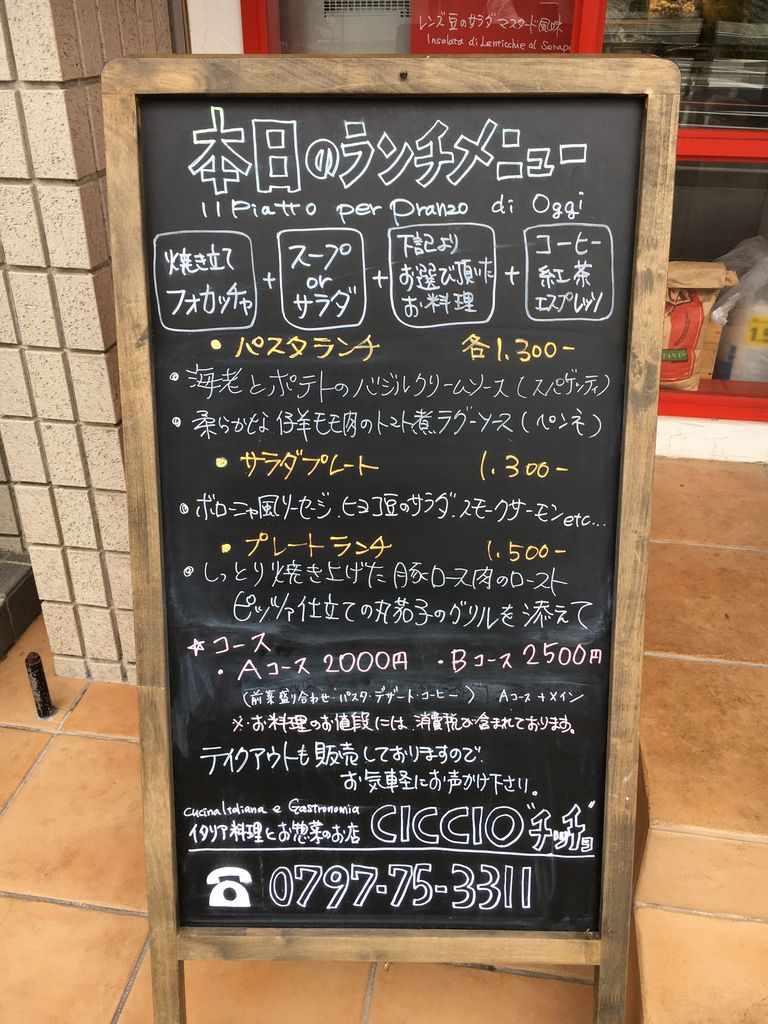 レンズ豆のサラダ マスタード風味
Insalata di Lenticchie al Senape
本日のランチメニュー
Il Piatto per pranzo di Oggi
焼き立て
フォカッチャ
+
スープ
or
サラダ
+
下記より
お選び頂いた
お料理
+
コーヒー
紅茶
エスプレッソ
・パスタランチ 各1.300-
・海老とポテトのバジルクリームソース(スパゲッティ)
・柔らかな仔羊モモ肉のトマト煮ラグーソース(ペンネ)
・サラダプレート 1.300-
・ボローニャ風ソーセージ、ヒヨコ豆のサラダ、スモークサーモンetc...
・プレートランチ 1.500-
・しっとり焼き上げた豚ロース肉のロースト
ピッツァ仕立ての丸茄子のグリルを添えて
☆コース
・Aコース 2000円 ・Bコース 2500円
(前菜盛り合わせ・パスタ・デザート・コーヒー) Aコース+メイン
※お料理のお値段には、消費税が含まれております。
テイクアウトも販売しておりますので、
お気軽にお声かけ下さい。
Cucina Italiana e Gastronomia
イタリア料理とお惣菜のお店 CICCIO "チッチョ"
☎ 0797-75-3311